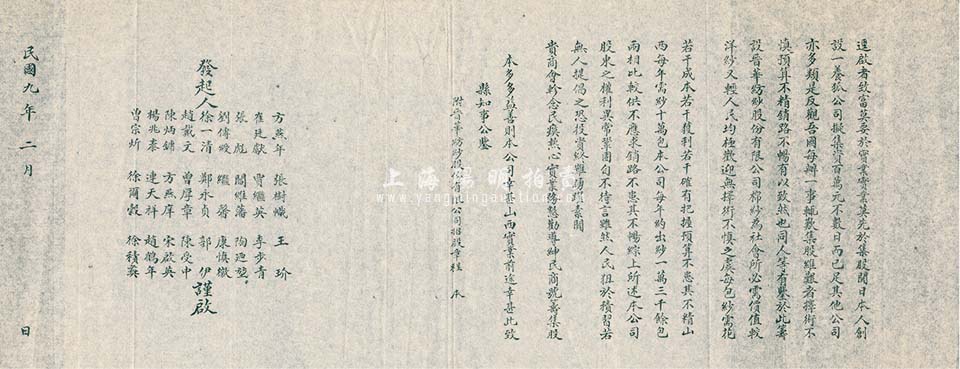 逕啟者致富莫要於實業實業莫先於集股聞日本人創
設一養狐公司擬集資百萬元不數日而已足其他公司
亦多類是反觀吾國每辦一事輒歎集股維艱者擇術不
慎預算不精銷路不暢有以致然也同人等有鑒於此籌
設晉華紡紗股份有限公司棉紗為社會所必需價值較
洋紗又輕人民均極歡迎無擇術不慎之處每包紗需花
若干成本若干獲利若干確有把握預算不患其不精山
西每年需紗十萬包本公司每年約出紗一萬三千餘包
兩相比較供不應求銷路不患其不暢綜上所述本公司
股東之權利異常鞏固自不待言雖然人民狃於積習若
無人提倡之恐投資終雖踴躍素聞
貴商會軫念民瘼熱心實業務懇勸導紳民商號籌集股
本多多益善則本公司幸甚山西實業前途幸甚此致
縣知事公鑒
附晉華紡紗股份有限公司招股章程 本
方燕年 張樹幟 王 玠
崔廷獻 賈繼英 李步青
張 彪 閻維藩 陶迺
劉傳綬 繼 馨 康慎徽
發起人徐一清 鄭永貞 郭 伊 謹啟
趙戴文 曾厚章 陳受中
陳炳鏞 方燕庠 宋啟英
楊兆泰 連天祥 趙鶴年
曹宗炘 徐爾穀 徐積
民國九年二月 日
上海陽明拍賣
www.yangmingauction.com